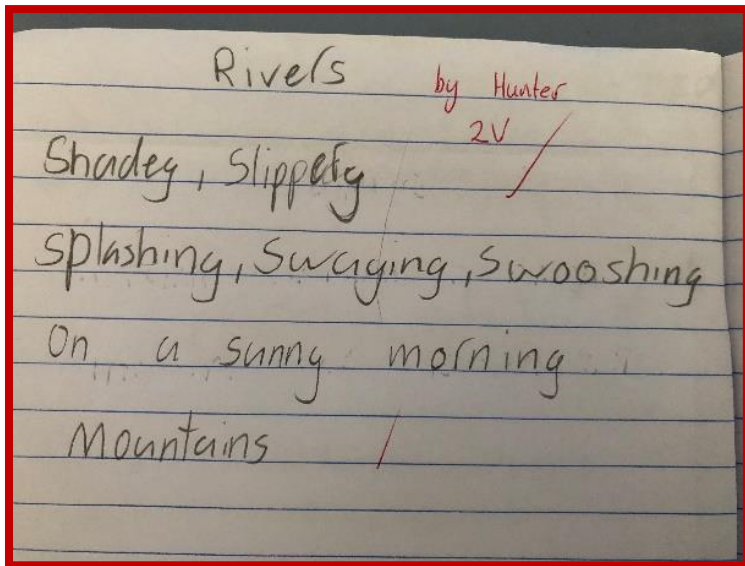 Rivers
by Hunter
2V
Shadey, Slippery
splashing, Swaying, Swooshing
On a sunny morning
Mountains